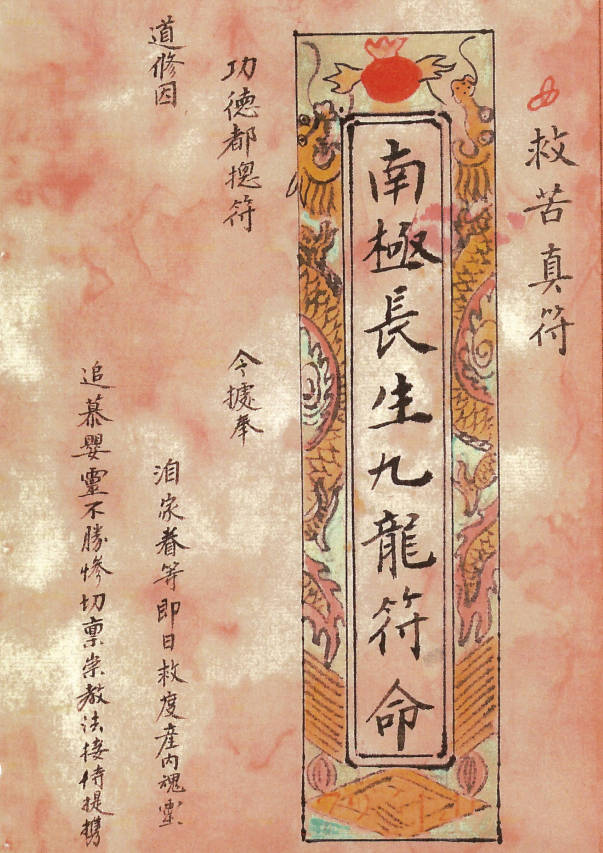 救苦真符
南極長生九龍符命
功德都摠符
令據奉
道修因
洎家眷等即日救度產內魂靈
追慕嬰靈不勝慘切稟崇教法接待提携